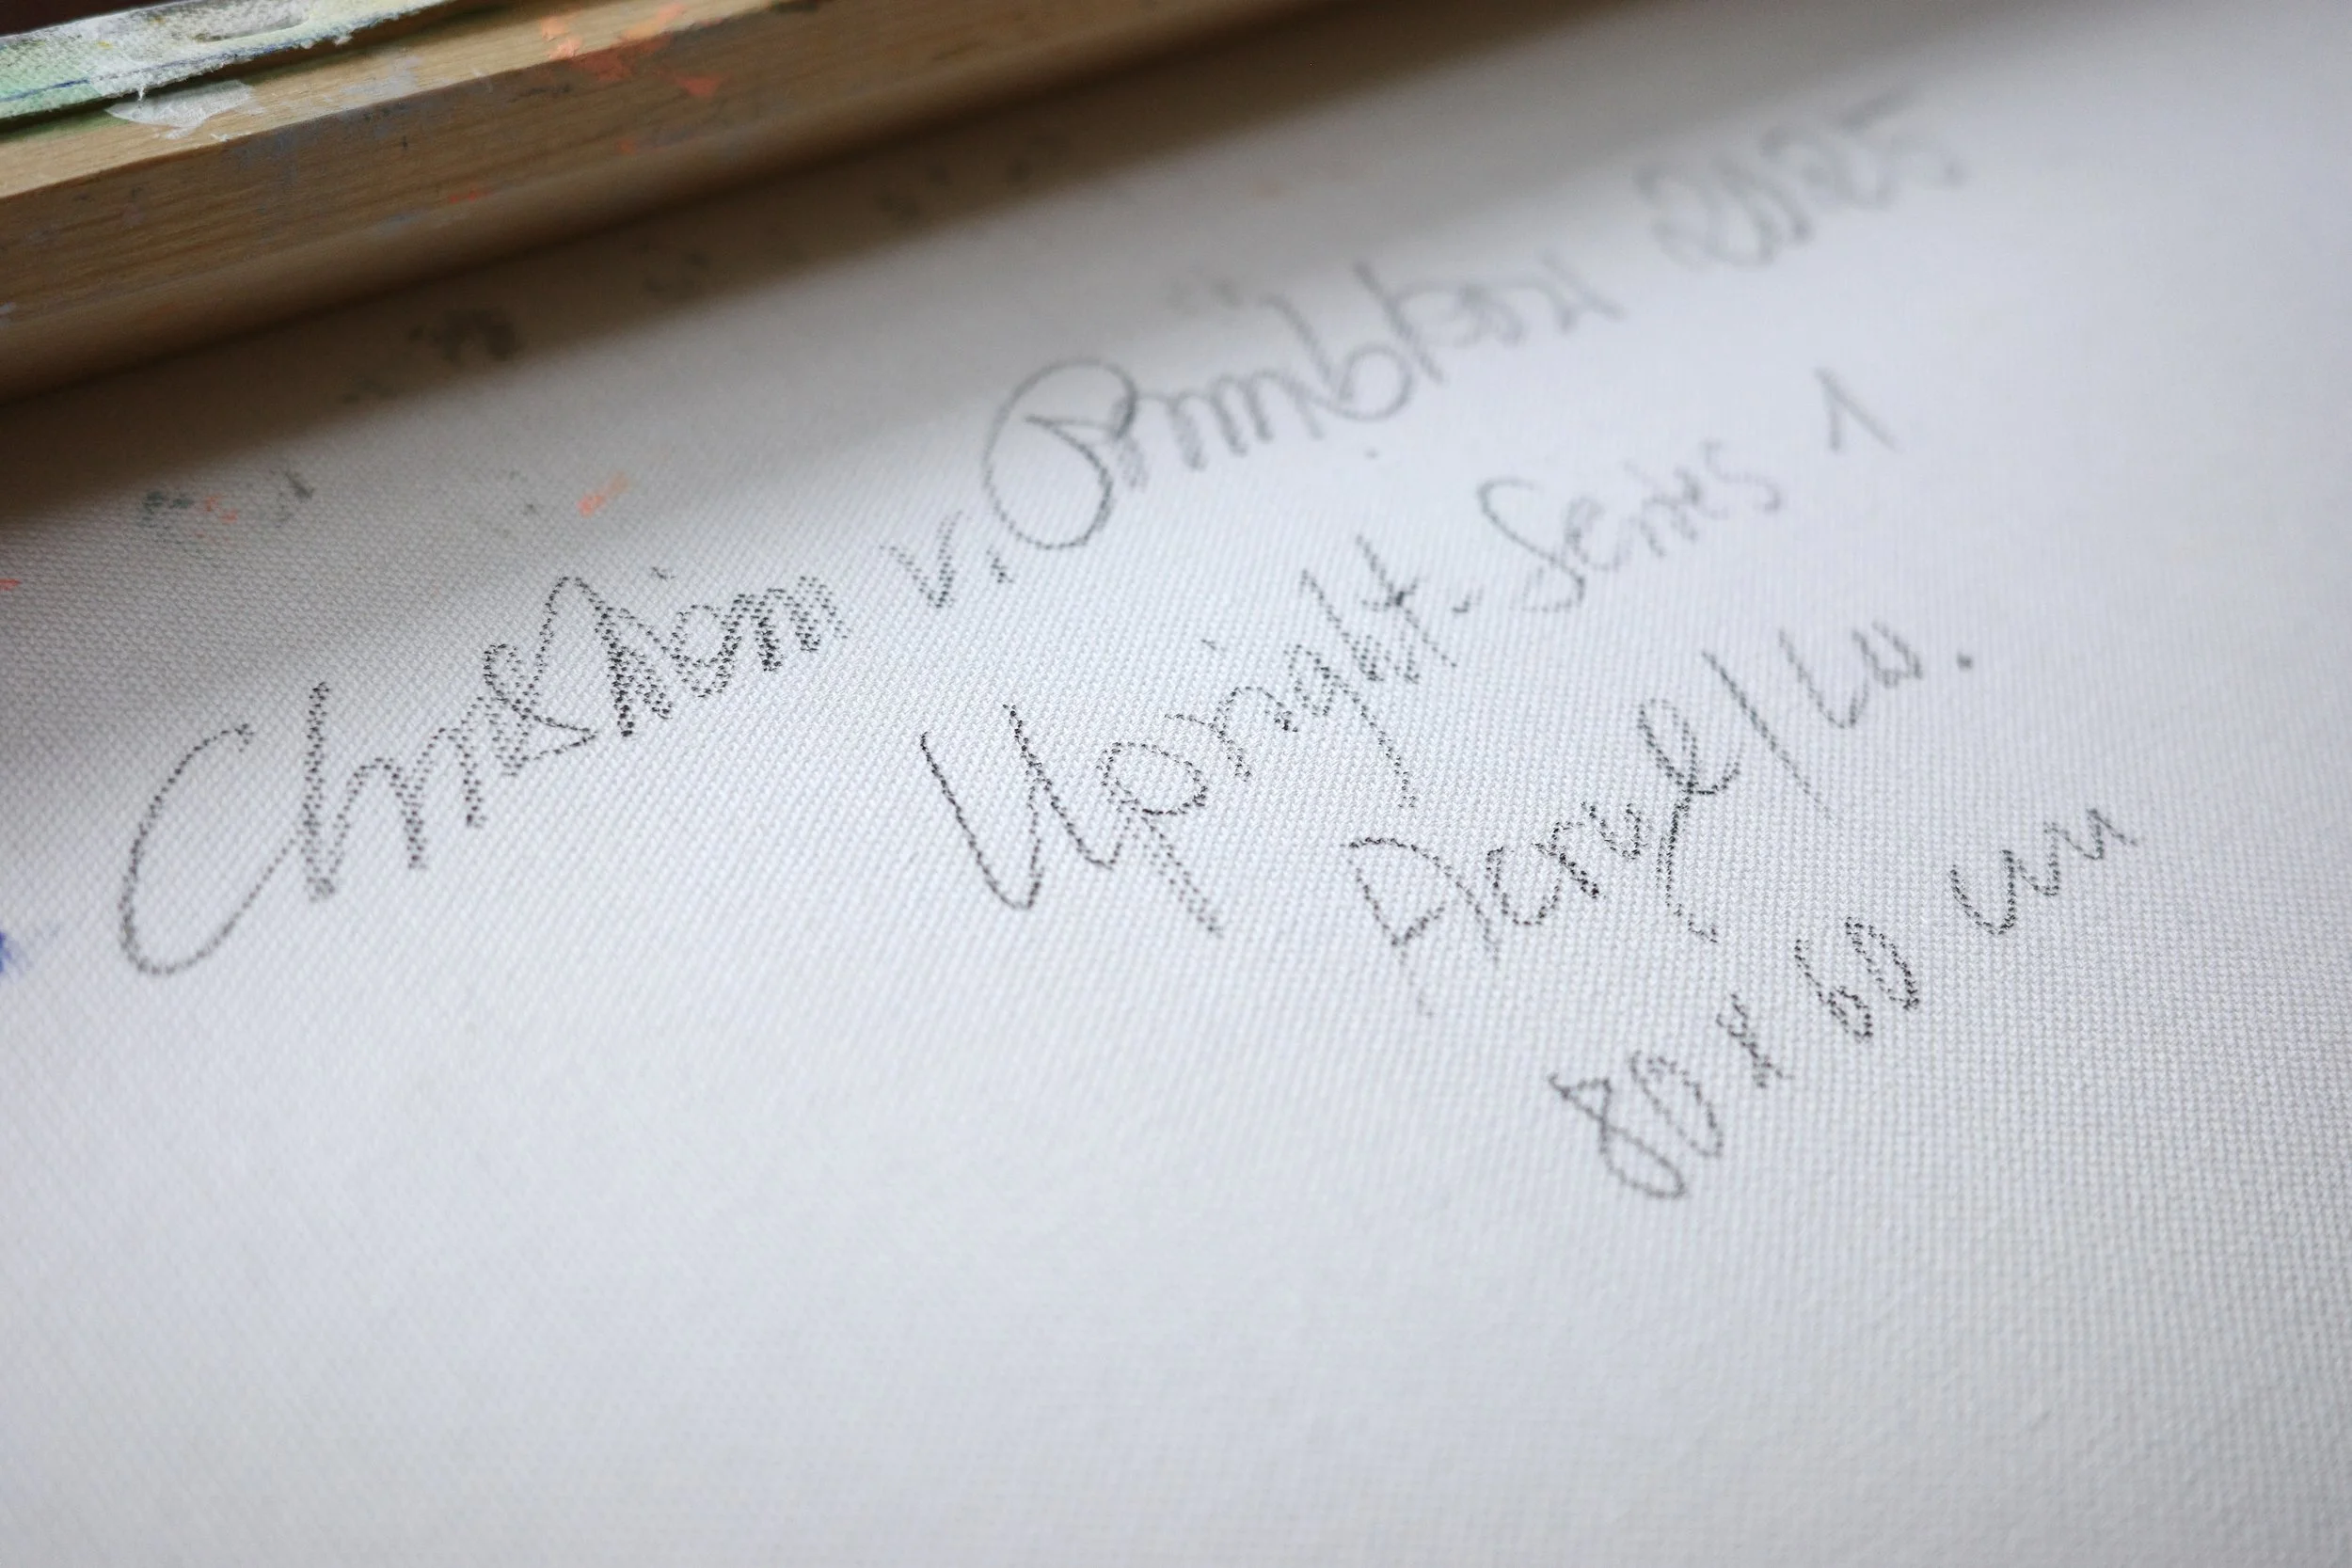 Christian v. 2025
Upright-Series 1
Acryl/Lw.
80 x 60 cm